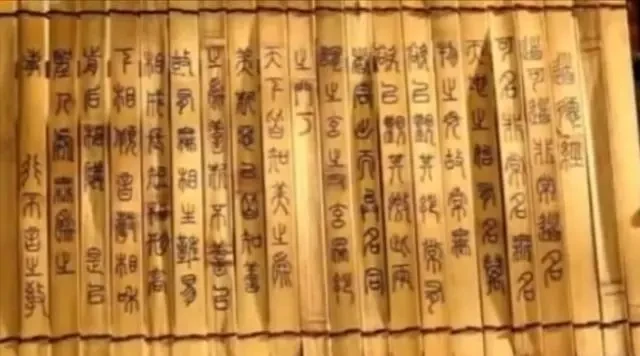 道德經
道可道非常道名
可名非常名無名
天地之始有名萬
物之母故常無
欲以觀其妙常有
欲以觀其徼此兩
者同出而異名同
謂之玄之又玄眾妙
之門
天下皆知美之爲
美斯惡已皆知善
之爲善斯不善已
故有無相生難易
相成長短相形高
下相傾音聲相和
前后相隨 是以
聖人處無爲之
事 行不言之教